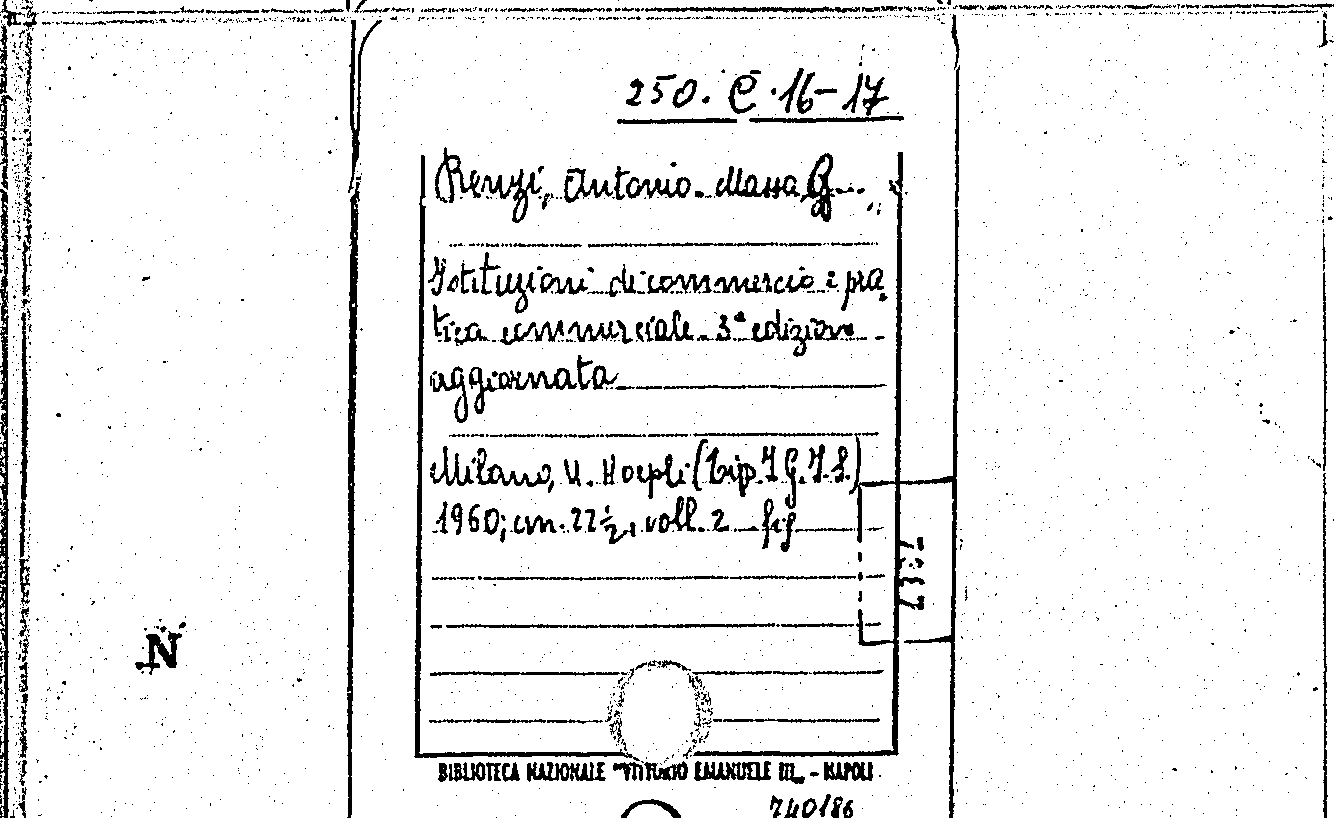 250. C. 16-17
Renzi, Antonio. Massa, G...
Istituzioni di commercio e pra-
tica commerciale. 3ª edizione
aggiornata
Milano, U. Hoepli (Tip. I.G.I.S.)
1960; cm. 22½, voll. 2 fig
N
BIBLIOTECA NAZIONALE "VITTORIO EMANUELE III„ - NAPOLI
740186